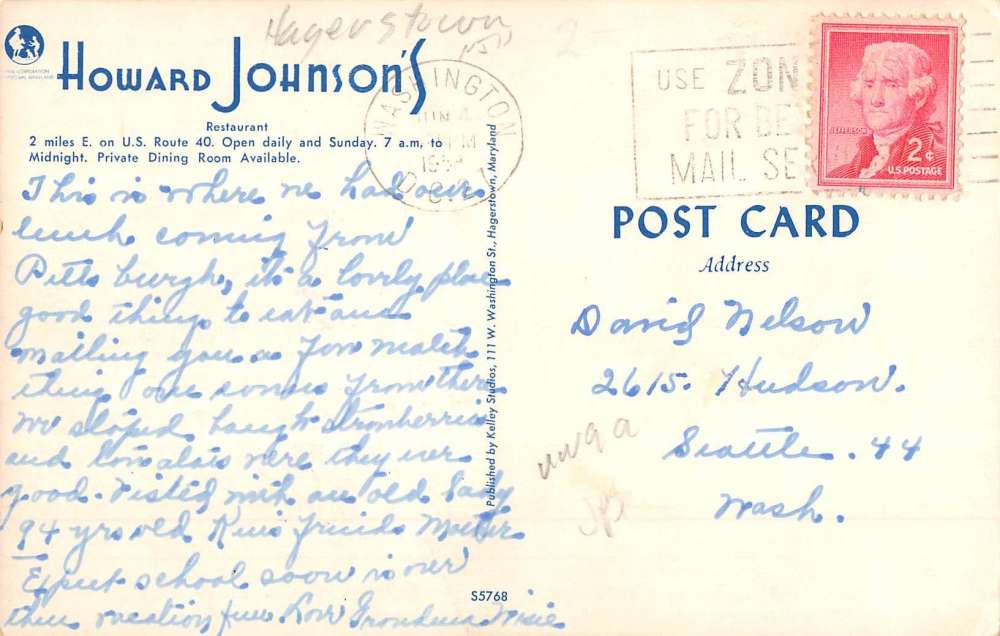 Hagerstown
HOWARD JOHNSON'S
Restaurant
2 miles E. on U.S. Route 40. Open daily and Sunday. 7 a.m. to
Midnight. Private Dining Room Available.
This is where we had our
lunch coming from
Pittsburgh, its a lovely place
good things to eat and
mailing you a few match
thing one comes from there
we stoped baugh stromberries
and
good. Visted with an old lady
94 yrs old friends Mother
Expect school soon is over
then vacation fun Love Grandma
Published by Kelley Studios, 111 W. Washington St., Hagerstown, Maryland
S5768
WASHINGTON
JUN 4
PM
195
D.C.
USE ZON
FOR BE
MAIL SE
JEFFERSON
2¢
U.S. POSTAGE
POST CARD
Address
David Nelson
2615. Hudson.
Seattle. 44
Wash.